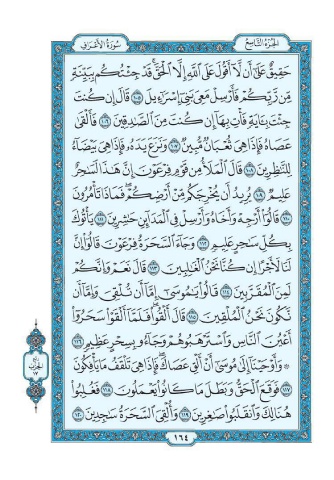 الجزء التاسع
سورة الأعراف
حَقِيقٌ عَلَىٰٓ أَن لَّآ أَقُولَ عَلَى ٱللَّهِ إِلَّا ٱلْحَقَّ قَدْ جِئْتُكُم بِبَيِّنَةٍ
مِّن رَّبِّكُمْ فَأَرْسِلْ مَعِيَ بَنِىٓ إِسْرَٰٓءِيلَ ١٠٥ قَالَ إِن كُنتَ
جِئْتَ بِـَٔايَةٍ فَأْتِ بِهَآ إِن كُنتَ مِنَ ٱلصَّٰدِقِينَ ١٠٦ فَأَلْقَىٰ
عَصَاهُ فَإِذَا هِىَ ثُعْبَانٌ مُّبِينٌ ١٠٧ وَنَزَعَ يَدَهُۥ فَإِذَا هِىَ بَيْضَآءُ
لِلنَّٰظِرِينَ ١٠٨ قَالَ ٱلْمَلَأُ مِن قَوْمِ فِرْعَوْنَ إِنَّ هَٰذَا لَسَٰحِرٌ
عَلِيمٌ ١٠٩ يُرِيدُ أَن يُخْرِجَكُم مِّنْ أَرْضِكُمْ فَمَاذَا تَأْمُرُونَ
١١٠ قَالُوٓا۟ أَرْجِهْ وَأَخَاهُ وَأَرْسِلْ فِى ٱلْمَدَآئِنِ حَٰشِرِينَ ١١١ يَأْتُوكَ
بِكُلِّ سَٰحِرٍ عَلِيمٍ ١١٢ وَجَآءَ ٱلسَّحَرَةُ فِرْعَوْنَ قَالُوٓا۟ إِنَّ
لَنَا لَأَجْرًا إِن كُنَّا نَحْنُ ٱلْغَٰلِبِينَ ١١٣ قَالَ نَعَمْ وَإِنَّكُمْ
لَمِنَ ٱلْمُقَرَّبِينَ ١١٤ قَالُوا۟ يَٰمُوسَىٰٓ إِمَّآ أَن تُلْقِىَ وَإِمَّآ أَن
نَّكُونَ نَحْنُ ٱلْمُلْقِينَ ١١٥ قَالَ أَلْقُوا۟ فَلَمَّآ أَلْقَوْا۟ سَحَرُوٓا۟
أَعْيُنَ ٱلنَّاسِ وَٱسْتَرْهَبُوهُمْ وَجَآءُو بِسِحْرٍ عَظِيمٍ ١١٦
۞ وَأَوْحَيْنَآ إِلَىٰ مُوسَىٰٓ أَنْ أَلْقِ عَصَاكَ فَإِذَا هِىَ تَلْقَفُ مَا يَأْفِكُونَ
١١٧ فَوَقَعَ ٱلْحَقُّ وَبَطَلَ مَا كَانُوا۟ يَعْمَلُونَ ١١٨ فَغُلِبُوا۟
هُنَالِكَ وَٱنقَلَبُوا۟ صَٰغِرِينَ ١١٩ وَأُلْقِىَ ٱلسَّحَرَةُ سَٰجِدِينَ ١٢٠
١٦٤